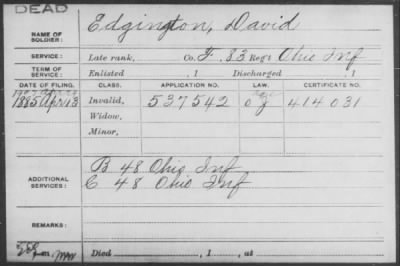 DEAD
NAME OF SOLDIER: Edgington, David
SERVICE: Late rank, Co. F. 83 Reg't Ohio Inf
TERM OF SERVICE: Enlisted , 1 Discharged , 1
DATE OF FILING. CLASS. APPLICATION NO. LAW. CERTIFICATE NO.
1885 Apr 13 Invalid, 537542 414031
Widow,
Minor,
ADDITIONAL SERVICES: B 48 Ohio Inf
C 48 Ohio Inf
REMARKS:
Died , 1 , at